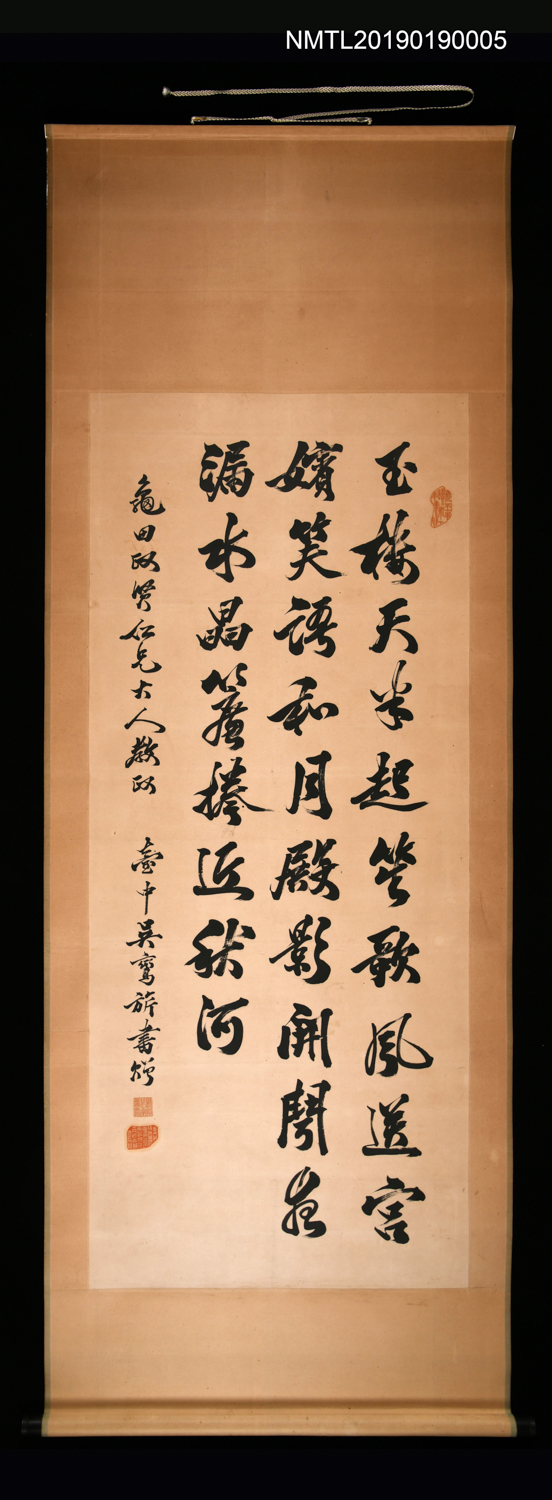 NMTL20190190005
玉樓天半起笙歌風送宮
嬪笑語和月殿影開聞夜
漏水晶簾捲近秋河
龜田政賢仁兄大人教政
臺中吳鸞旂書贈